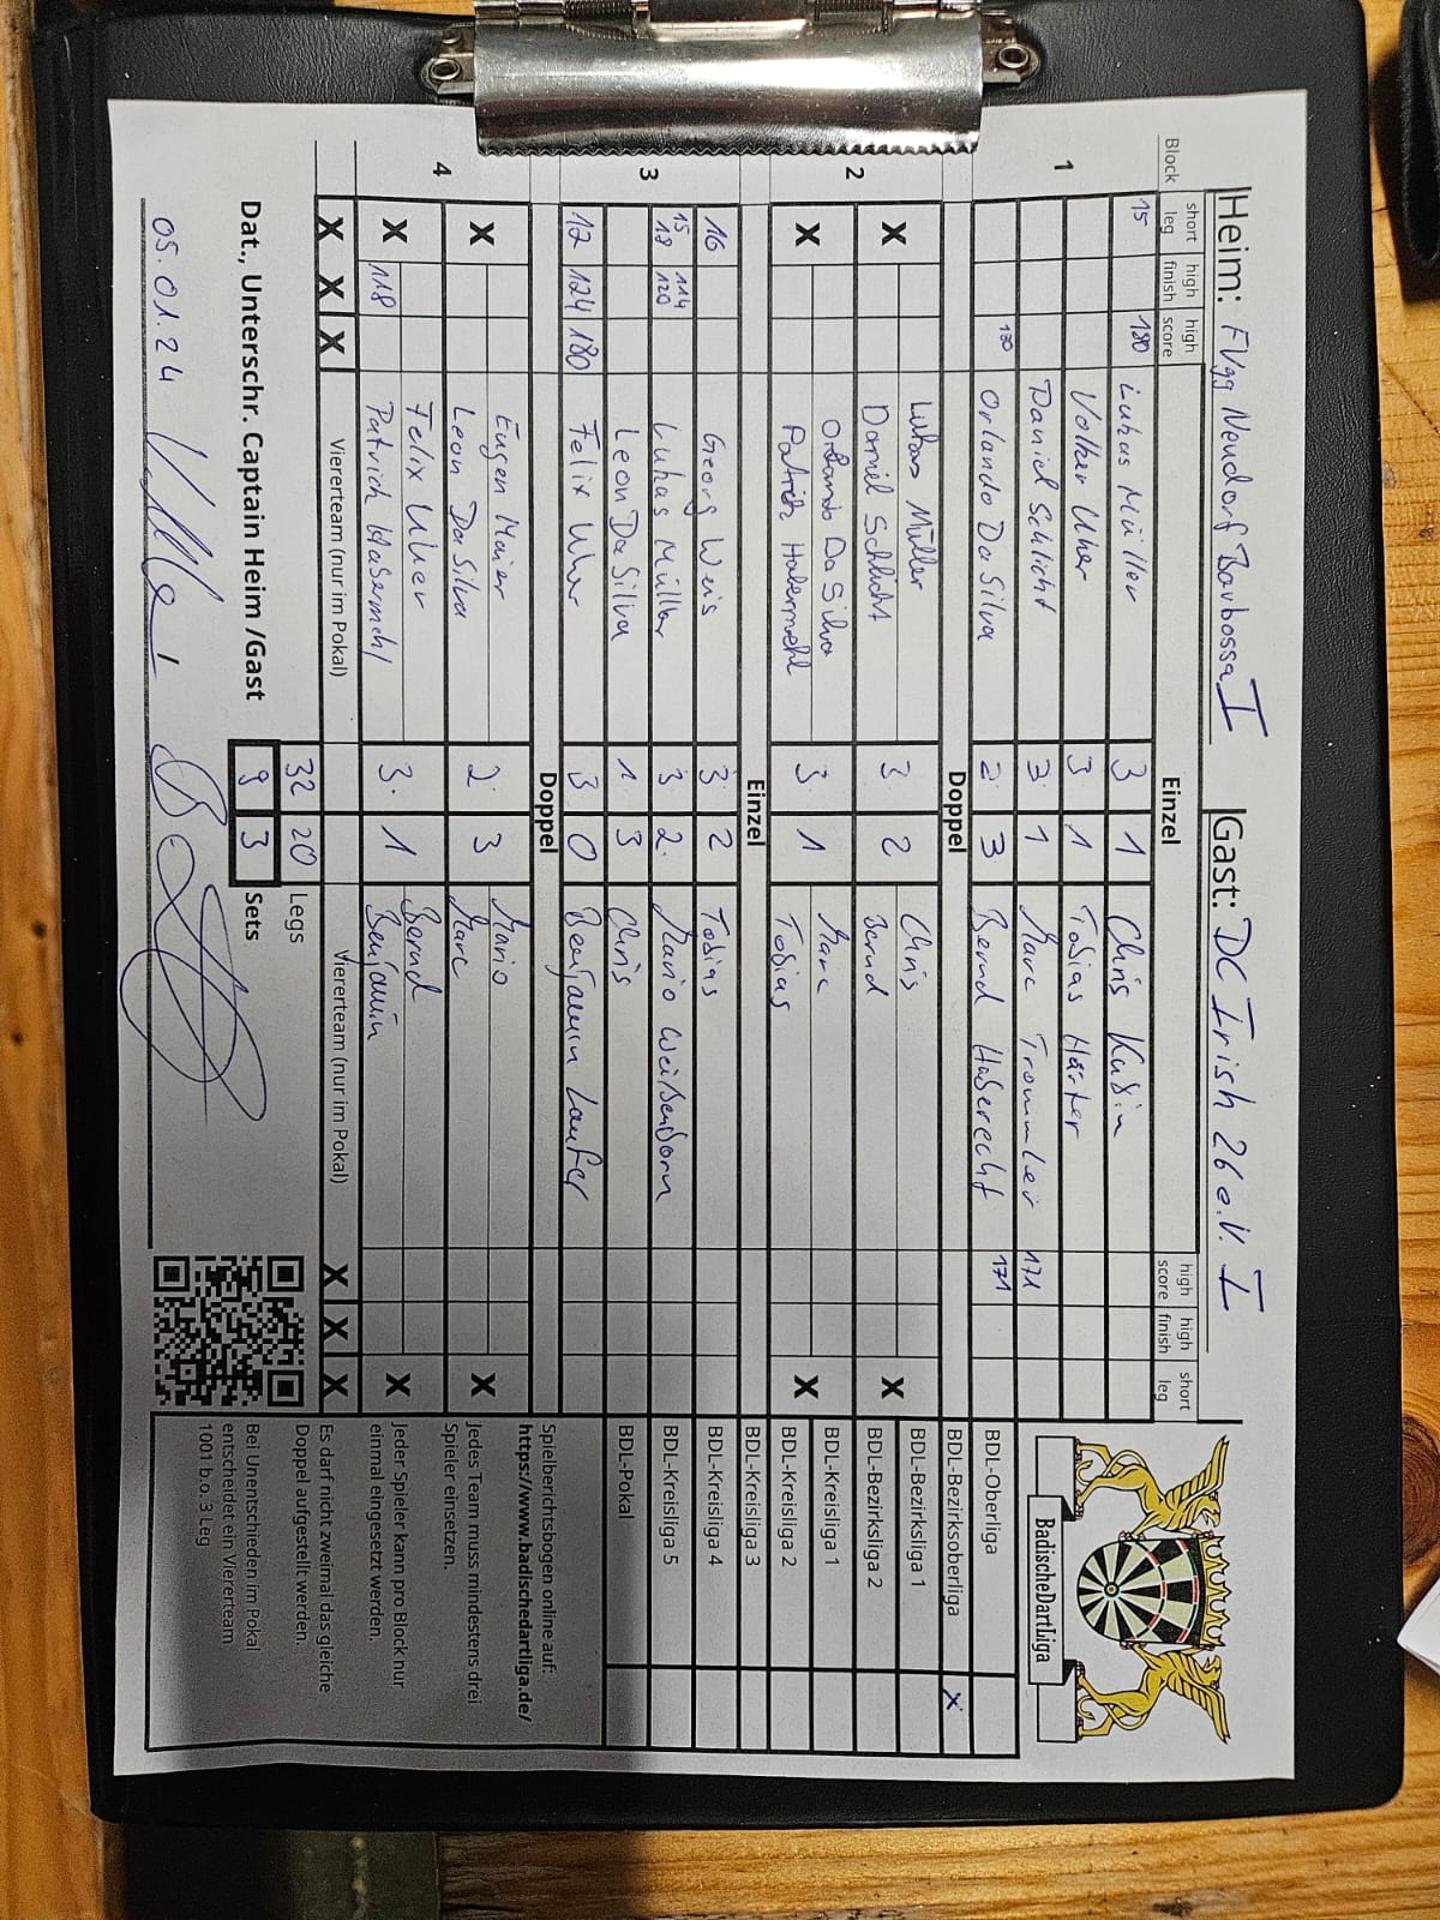 Heim: FVgg Neudorf Barbossa I Gast: DC Irish 26 e.V. I
Block short leg high finish high score Einzel high score high finish short leg
1
15 180 Lukas Müller 3 1 Chris Kubin
Volker Uher 3 1 Tobias Härter
Daniel Schlicht 3 1 Marc Trommler 171
180 Orlando Da Silva 2 3 Bernd Haberecht 171
Doppel
2
X Lukas Müller Daniel Schlicht 3 2 Chris Bernd X
X Orlando Da Silva Patrick Habermehl 3 1 Marc Tobias X
Einzel
3
16 Georg Weis 3 2 Tobias
15 18 114 120 Lukas Müller 3 2 Mario Weißenborn
Leon Da Silva 1 3 Chris
12 124 180 Felix Uher 3 0 Benjamin Laufer
Doppel
4
X Eugen Maier Leon Da Silva 2 3 Mario Marc X
X 118 Felix Uher Patrick Habermehl 3 1 Bernd Benjamin X
X X X Viererteam (nur im Pokal) Viererteam (nur im Pokal) X X X
32 20 Legs
Dat., Unterschr. Captain Heim /Gast 9 3 Sets
05.01.24
BadischeDartLiga
BDL-Oberliga
BDL-Bezirksoberliga x
BDL-Bezirksliga 1
BDL-Bezirksliga 2
BDL-Kreisliga 1
BDL-Kreisliga 2
BDL-Kreisliga 3
BDL-Kreisliga 4
BDL-Kreisliga 5
BDL-Pokal
Spielberichtsbogen online auf:
https://www.badischedartliga.de/
Jedes Team muss mindestens drei
Spieler einsetzen.
Jeder Spieler kann pro Block nur
einmal eingesetzt werden.
Es darf nicht zweimal das gleiche
Doppel aufgestellt werden.
Bei Unentschieden im Pokal
entscheidet ein Viererteam
1001 b.o. 3 Leg